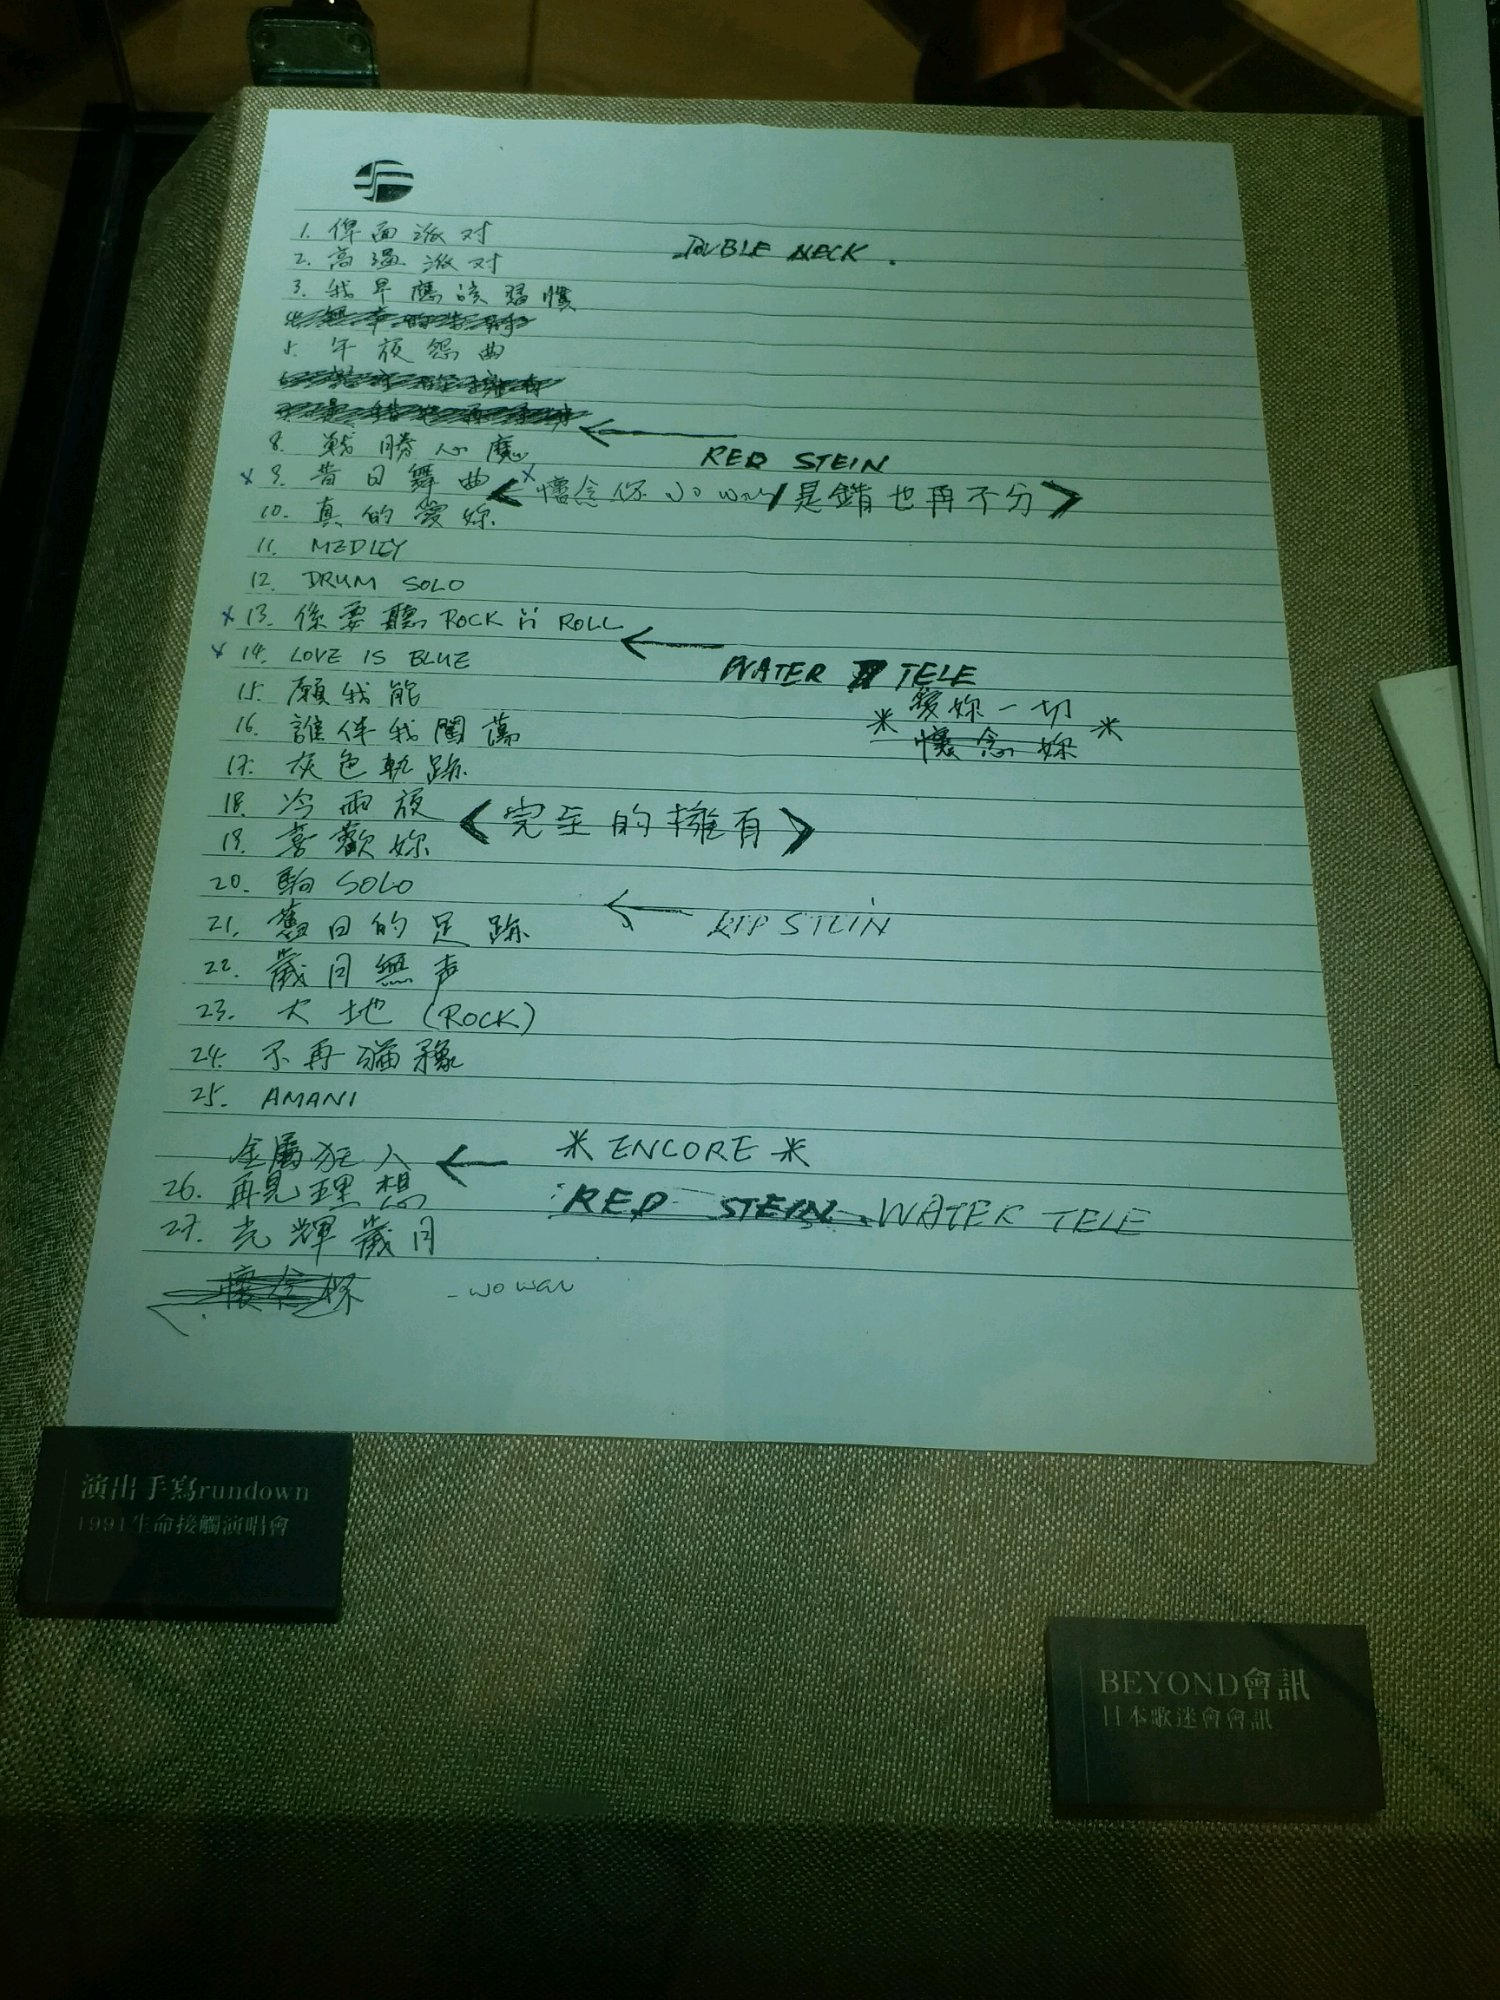 1. 俾面派对
DOUBLE NECK.
2. 高溫派对
3. 我早應該習慣
5. 午夜怨曲
8. 戰勝心魔
RED STEIN
9. 昔日舞曲
<懷念你 Wo Wan/是錯也再不分>
10. 真的愛妳
11. MEDLEY
12. DRUM SOLO
13. 係要聽 ROCK N ROLL
14. LOVE IS BLUE
WATER TELE
15. 願我能
*愛妳一切*
16. 誰伴我闖蕩
懷念妳
17. 灰色軌跡
18. 冷雨夜
<完全的擁有>
19. 喜歡妳
20. 駒 SOLO
21. 舊日的足跡
RED STEIN
22. 歲月無声
23. 大地 (ROCK)
24. 不再猶豫
25. AMANI
*ENCORE*
金屬狂人
26. 再見理想
RED STEIN WATER TELE
27. 光輝歲月
- wo wan
演出手寫rundown
1991生命接觸演唱會
BEYOND會訊
日本歌迷會會訊